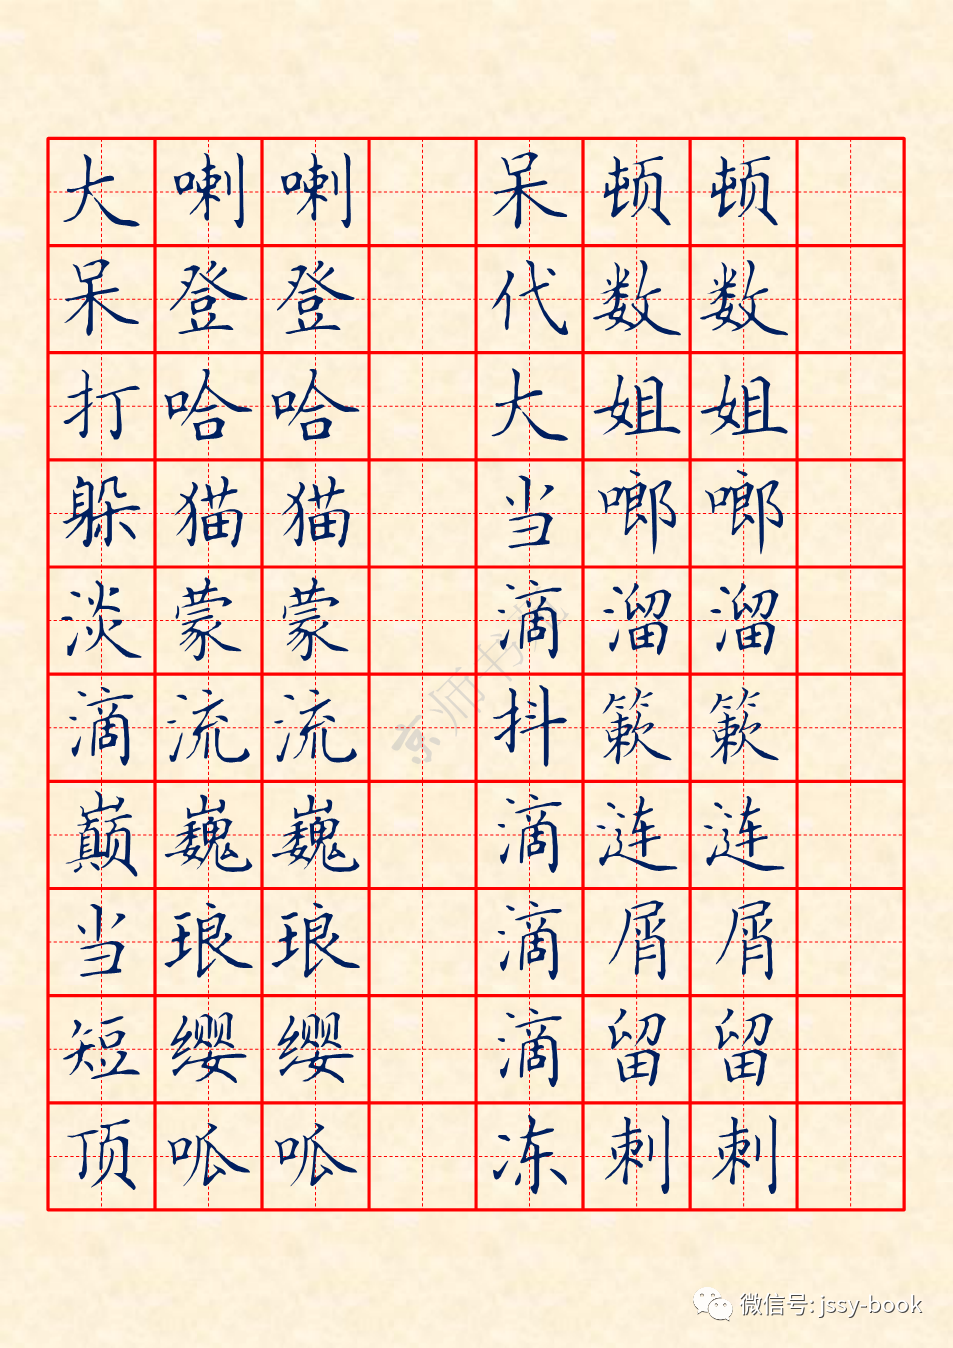 大喇喇 呆顿顿
呆登登 代数数
打哈哈 大姐姐
躲猫猫 当啷啷
淡蒙蒙 滴溜溜
滴流流 抖簌簌
巅巍巍 滴涟涟
当琅琅 滴屑屑
短缨缨 滴留留
顶呱呱 冻刺刺
京师书苑
微信号: jssy-book